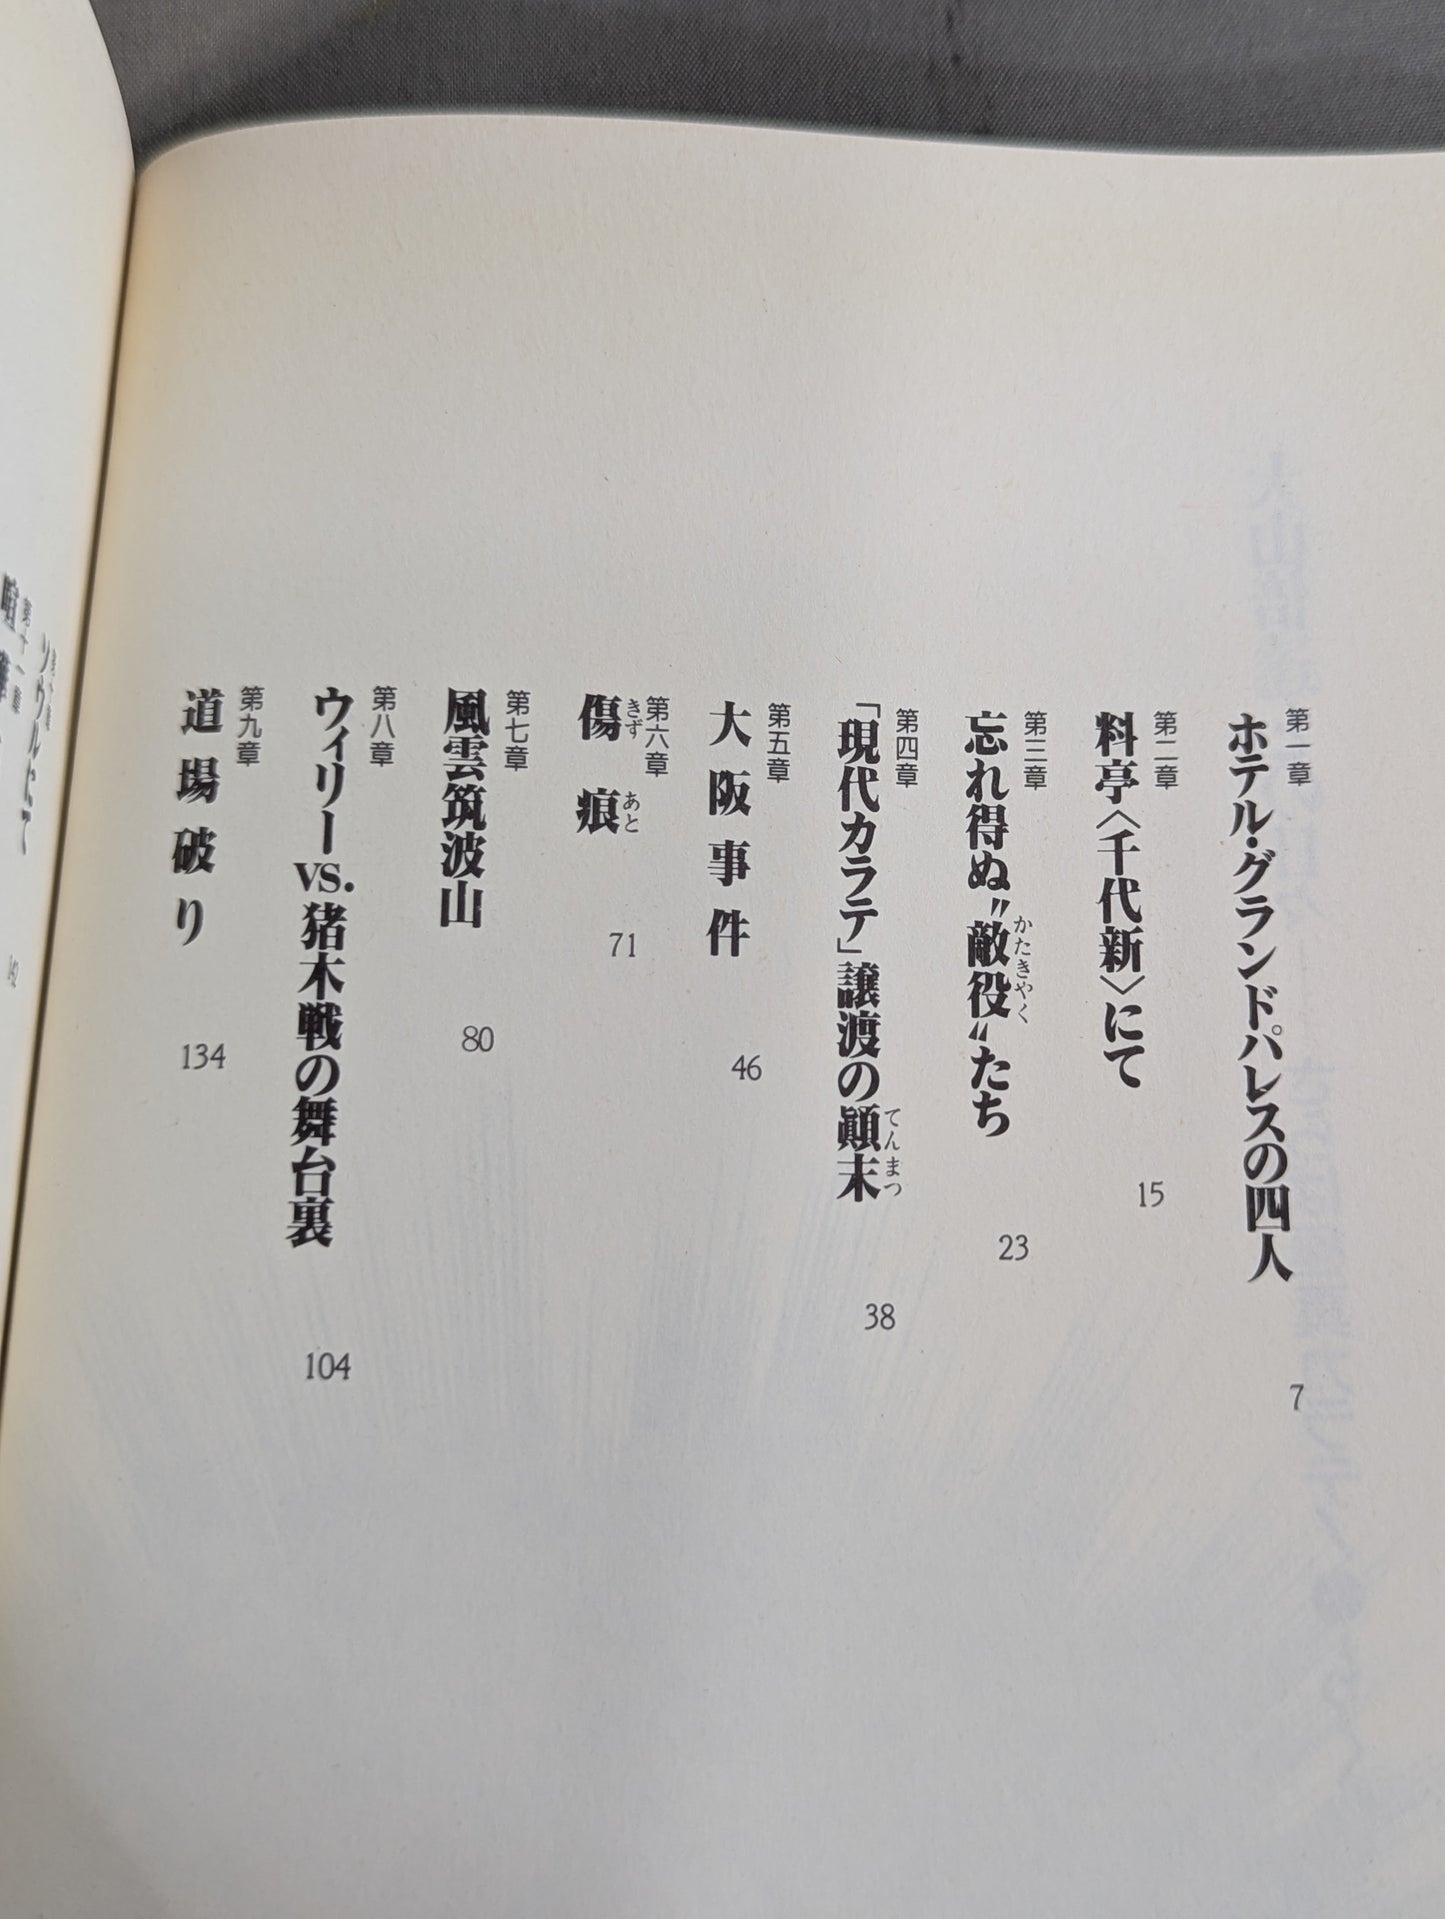 第一章
ホテル・グランドパレスの四人
7
第二章
料亭〈千代新〉にて
15
第三章
忘れ得ぬ〝敵役〟たち
かたきやく
23
第四章
「現代カラテ」譲渡の顚末
てんまつ
38
第五章
大阪事件
46
第六章
傷痕
きずあと
71
第七章
風雲筑波山
80
第八章
ウィリーvs.猪木戦の舞台裏
104
第九章
道場破り
134